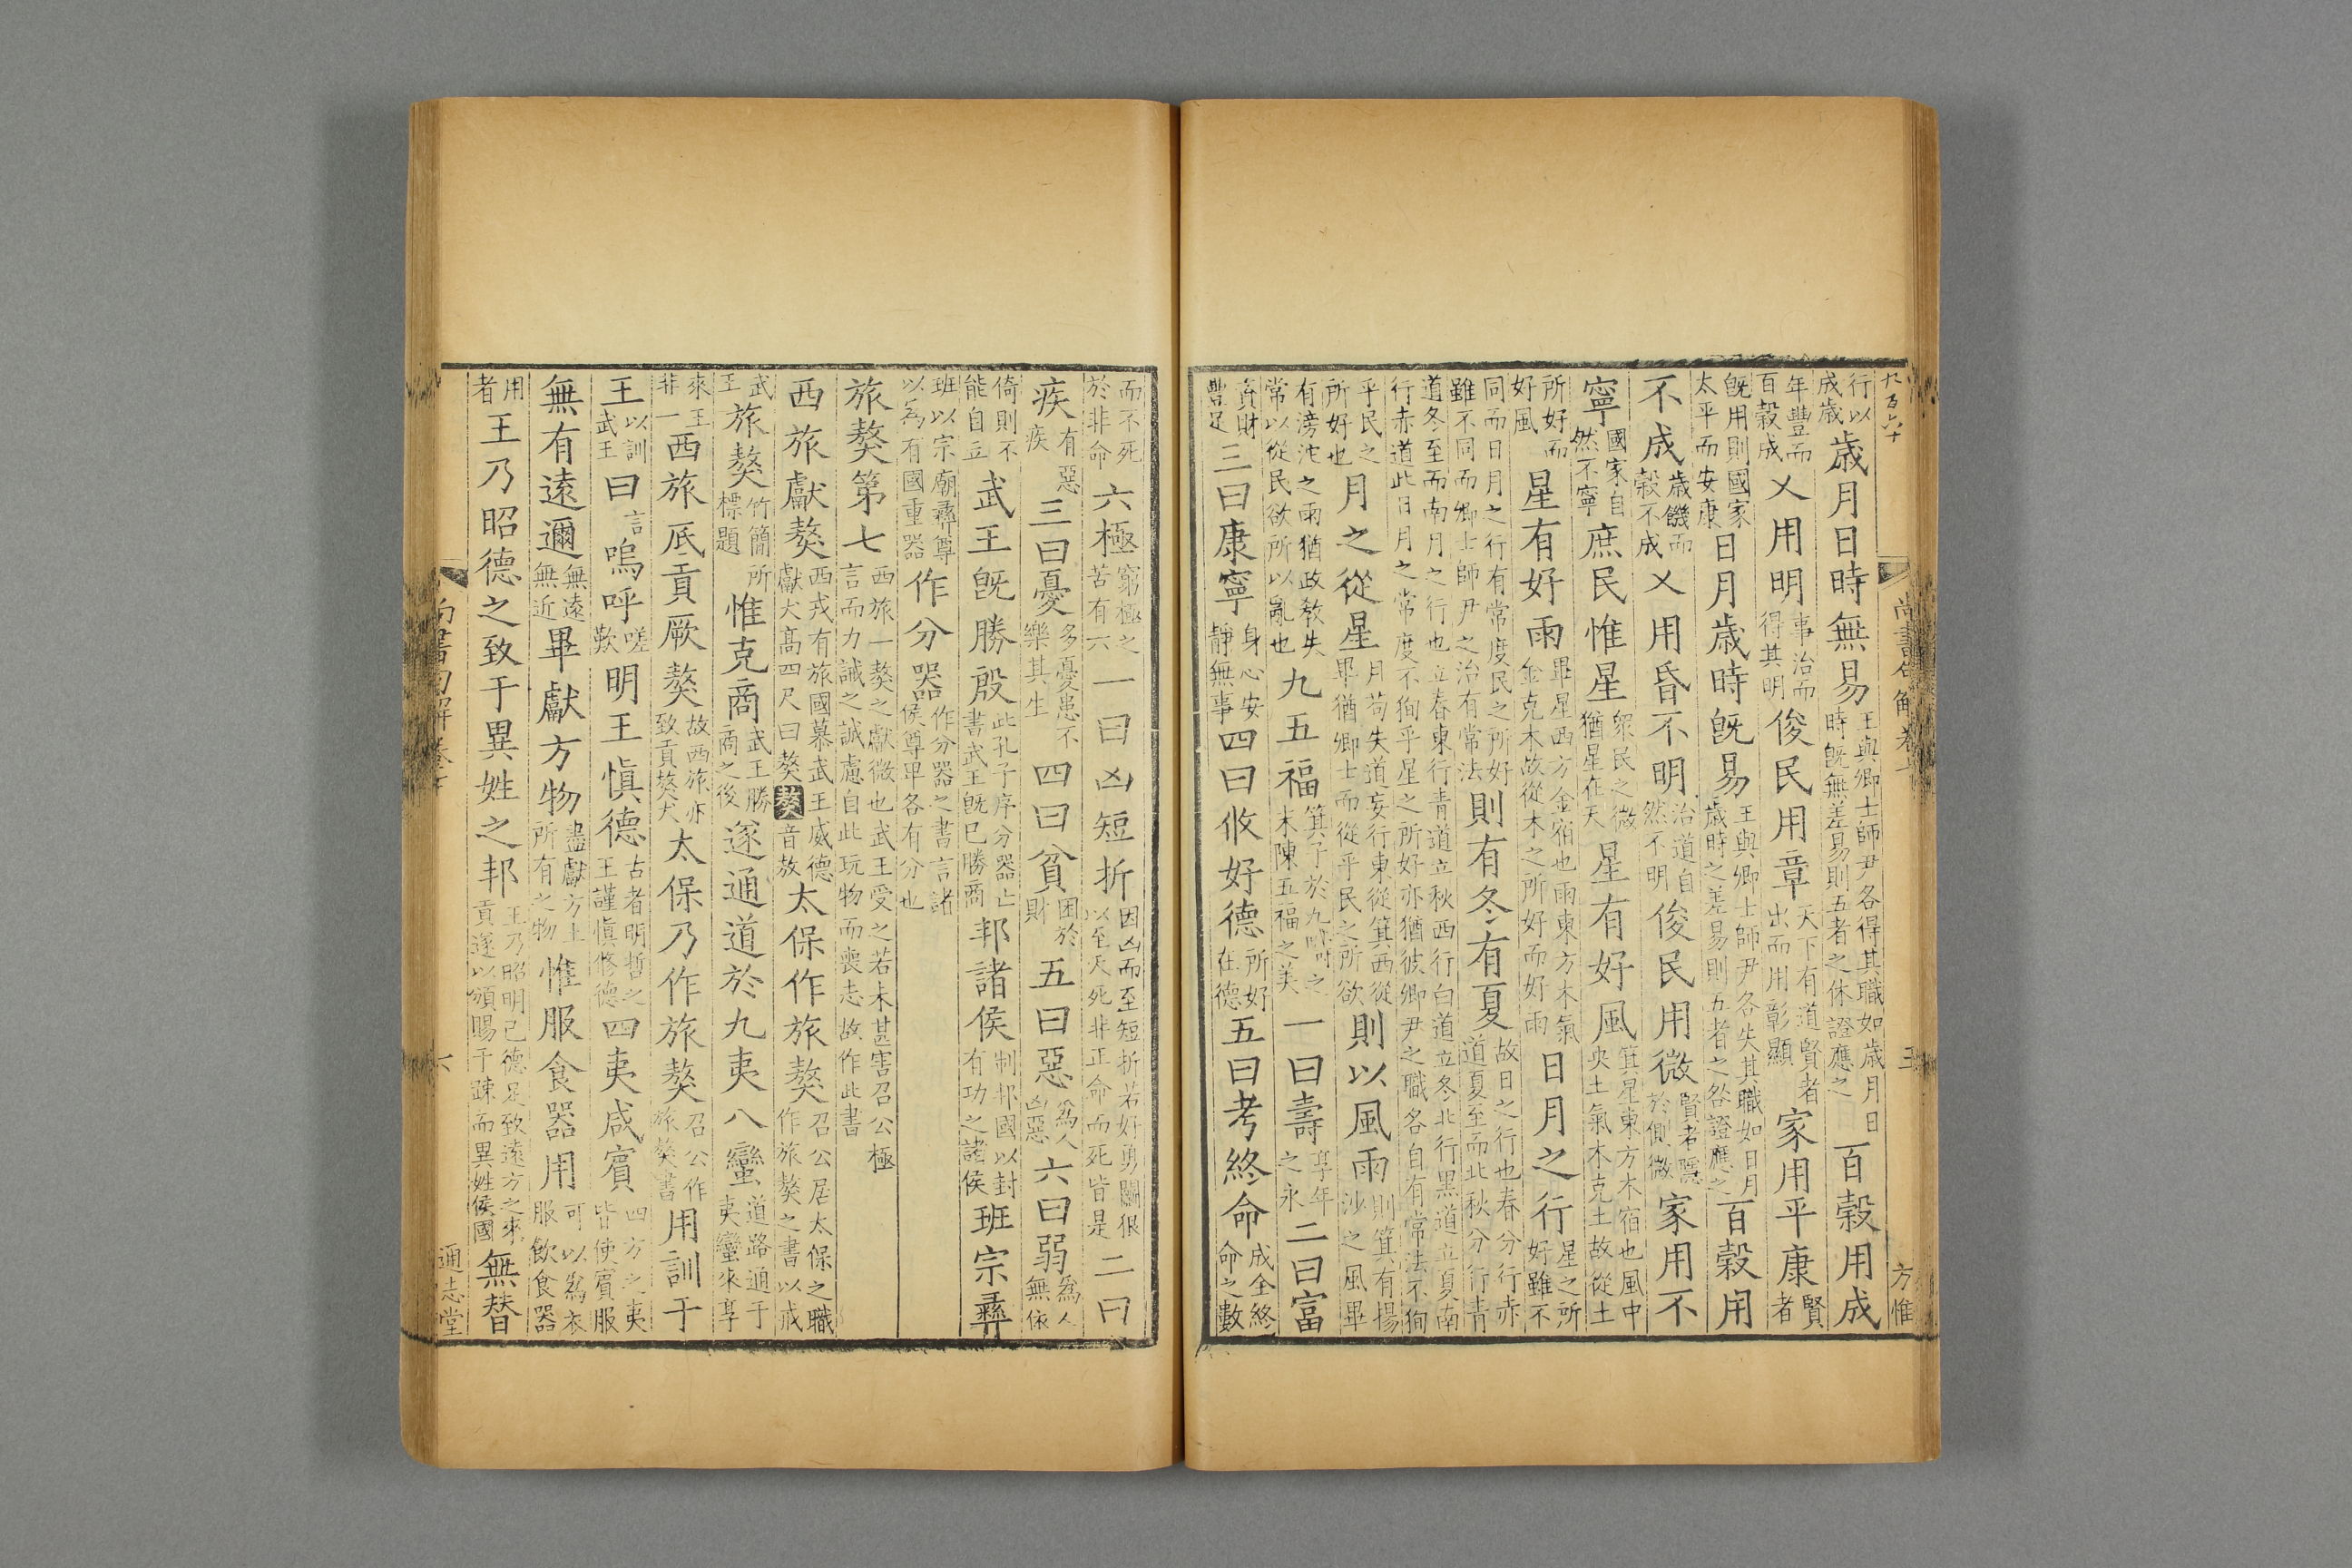 九百六十
尚書句解卷
五
方惟
行以成歲歲月日時無易王與卿士師尹各得其職如歲月日時旣無差易則五者之休證應之百穀用成
年豐而百穀成乂用明事治而得其明俊民用章天下有道賢者出而用彰顯家用平康賢者
旣用則國家太平而安康日月歲時旣易王與卿士師尹各失其職如日月歲時之差易則五者之咎證應之百穀用
不成歲饑而穀不成乂用昏不明治道自然不明俊民用微賢者隱於側微家用不
寧國家自然不寧庶民惟星衆民之微猶星在天星有好風箕星東方木宿也風中央土氣木克土故從土
所好而好風星有好雨畢星西方金宿也雨東方木氣金克木故從木之所好而好雨日月之行星之所好雖不
同而日月之行有常度民之所好雖不同而卿士師尹之治有常法則有冬有夏故日之行也春分行赤道夏至而北秋分行青
道冬至而南月之行也立春東行青道立秋西行白道立冬北行黑道立夏南行赤道此日月之常度不狥乎星之所好亦猶彼卿尹之職各自有常法不狥
乎民之所好也月之從星月苟失道妄行東從箕西從畢猶卿士而從乎民之所欲則以風雨則箕有揚沙之風畢
有滂沱之雨猶政敎失常以從民欲所以亂也九五福箕子於九疇之末陳五福之美一曰壽享年之永二曰富
貨財豐足三曰康寧身心安靜無事四曰攸好德所好在德五曰考終命成全終命之數
而不死於非命六極窮極之苦有六一曰凶短折因凶而至短折若好勇鬭狠以至夭死非正命而死皆是二曰
疾有惡疾三曰憂多憂患不樂其生四曰貧困於財五曰惡爲人凶惡六曰弱爲人無依
倚則不能自立武王旣勝殷此孔子序分器亡書武王旣已勝商邦諸侯制邦國以封有功之諸侯班宗彝
班以宗廟彝尊以爲有國重器作分器作分器之書言諸侯尊卑各有分也
旅獒第七西旅一獒之獻微也武王受之若未甚害召公極言而力諫之誠慮自此玩物而喪志故作此書
西旅獻獒西戎有旅國慕武王威德獻犬高四尺曰獒獒音敖太保作旅獒召公居太保之職作旅獒之書以戒
武王旅獒竹簡所標題惟克商武王勝商之後遂通道於九夷八蠻道路通于夷蠻來享
來王非一西旅厎貢厥獒故西旅亦致貢獒犬太保乃作旅獒召公作旅獒書用訓于
王以訓武王曰言嗚呼嗟歎明王愼德古者明哲之王謹愼修德四夷咸賓四方之夷皆使賓服
無有遠邇無遠無近畢獻方物盡獻方土所有之物惟服食器用可以爲衣服飮食器
用者王乃昭德之致于異姓之邦王乃昭明已德足致遠方之來貢遂以頒賜于疎而異姓侯國無替
尚書句解卷七
六
通志堂